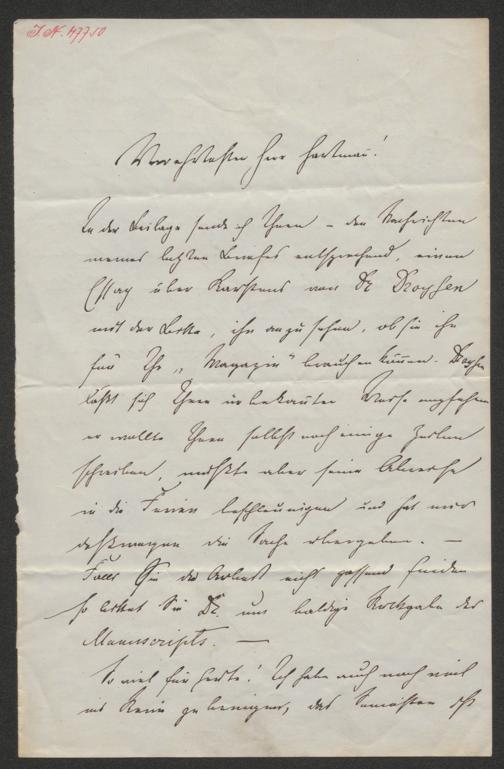 J. N. 47750
Verehrtester Herr Hartmann!
In der Beilage sende ich Ihnen – den Nachrichten
meines letzten Briefes entsprechend, einen
Essay über Karstens von Dr Droysen
mit der Bitte, ihn anzusehen, ob sie ihn
für Ihr „Magazin" brauchen können. Droysen
läßt sich Ihnen unbekannter Weise empfehlen
er wollte Ihnen selbst noch einige Zeilen
schreiben, mußte aber seine Abreise
in die Ferien beschleunigen und hat mir
deßwegen die Sache übergeben. –
Falls Sie die Arbeit nicht passend finden
so bittet Sie Dr. um baldige Rückgabe des
Manuscripts. –
So viel für heute! Ich habe auch noch viel
ins Reine zu bringen, das Semester ist